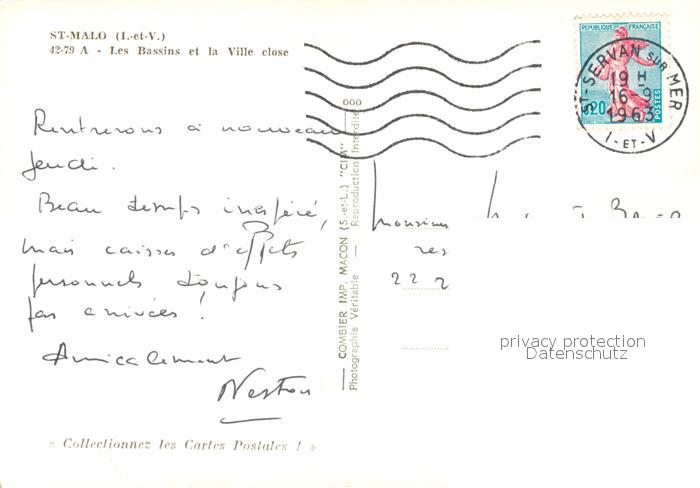 ST-MALO (I.-et-V.)
42-79 A - Les Bassins et la Ville close
REPUBLIQUE FRANÇAISE
0,20
POSTES
ST-SERVAN SUR MER
19 H
16-9
1963
I-ET-V.
Rentrerons à nouveau
jeudi.
Beau temps inespéré,
mais caisses d'effets
personnels toujours
pas arrivées !
Amicalement
Nestou
000
COMBIER IMP. MACON (S.-et-L.) "CIM"
Photographie Véritable — Reproduction Interdite
Monsieur
res
22 2
privacy protection
Datenschutz
« Collectionnez les Cartes Postales ! »